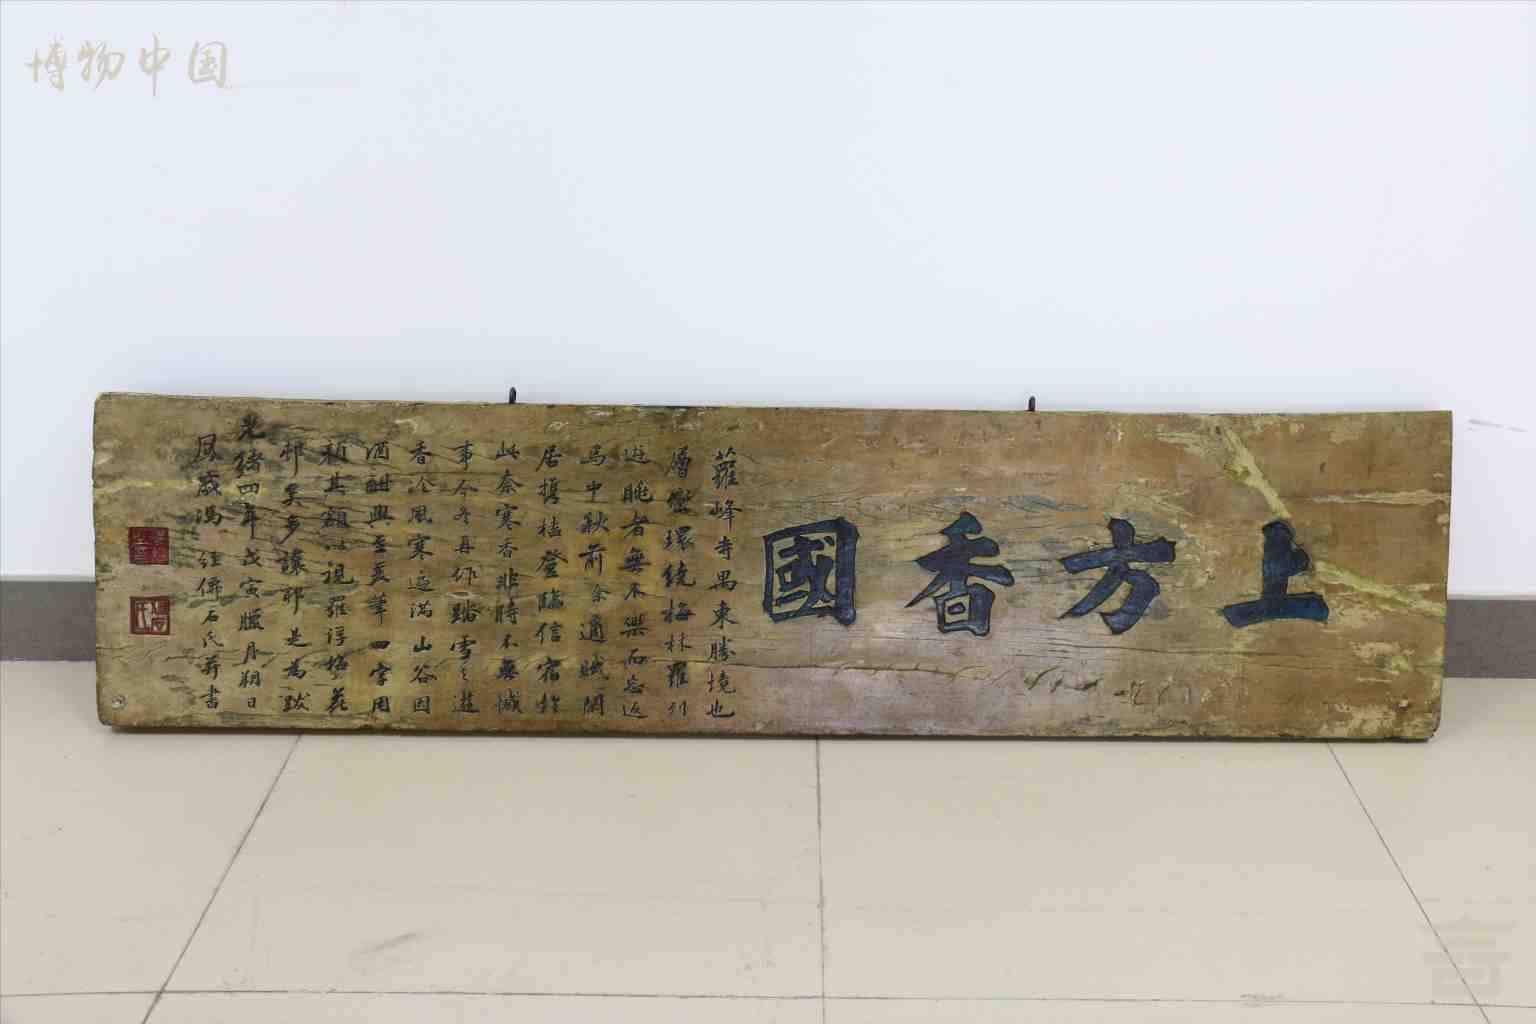 博物中国
上方香國
蘿峰寺禺東勝境也
層巒環繞梅林羅列
遊眺者無不樂而忘返
焉中秋前余適賦閒
居攜榼登臨信宿於
此奈寒香非時不無憾
事今冬再作踏雪之遊
香冷風寒逼滿山谷因
酒酣興至爰筆四字用
顏其額以視羅浮梅花
邨奚多讓耶是為跋
光緒四年戊寅臘月朔日
石氏並書